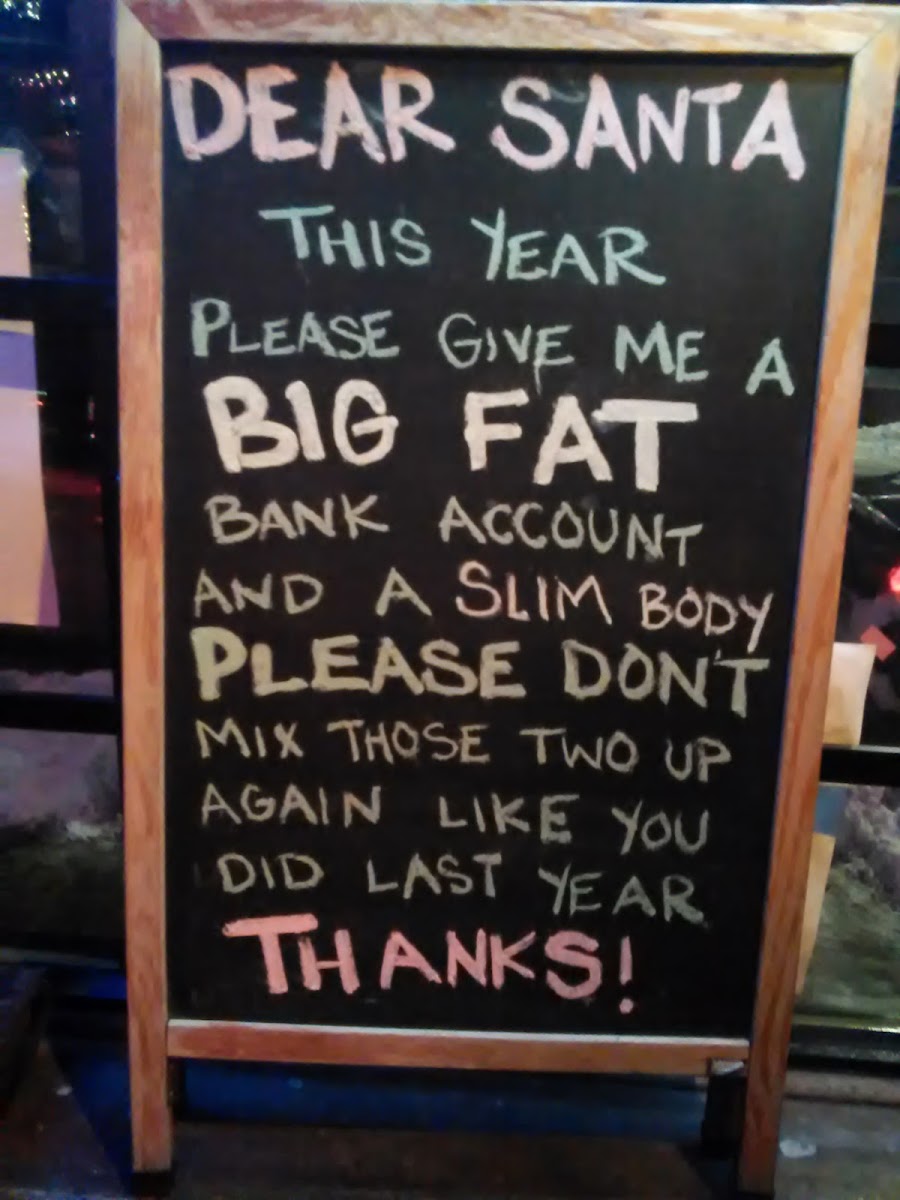 DEAR SANTA
THIS YEAR
PLEASE GIVE ME A
BIG FAT
BANK ACCOUNT
AND A SLIM BODY
PLEASE DON'T
MIX THOSE TWO UP
AGAIN LIKE YOU
DID LAST YEAR
THANKS!